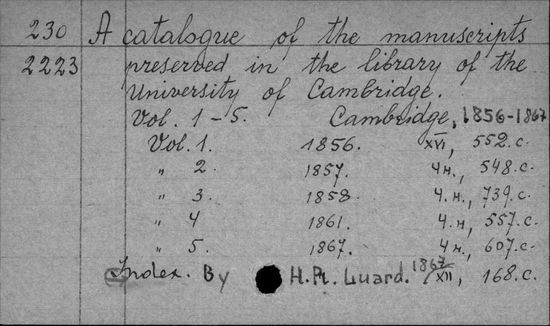 230 A catalogue of the manuscripts
2223 preserved in the library of the
University of Cambridge.
Vol. 1-5. Cambridge, 1856-1867
Vol. 1. 1856. XVI, 552.c.
" 2. 1857. 4н., 548.c.
" 3. 1858. 4.н., 739.c.
" 4 1861. 4.н, 557.c.
" 5. 1867. 4н., 607.c.
Index. By H.R. Luard. 1867 XII, 168.c.